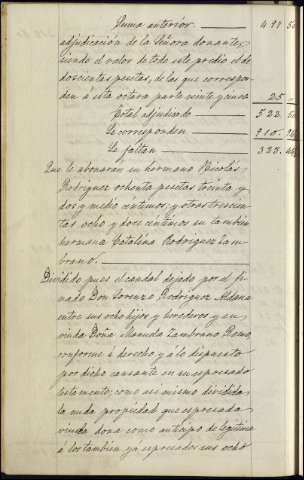 Suma anterior 497 50
adjudicación de la Señora donante,
siendo el valor de todo este predio el de
doscientas pesetas, de las que correspon-
den á esta octava parte veinte y cinco 25
Total adjudicado 522 50
Le corresponden
Le faltan
Que le abonaran su hermano Nicolás
Rodriguez ochenta pesetas treinta y
dos y medio centimos; y otras trescien-
tas ocho y doce centimos su tambien
hermana Catalina Rodriguez Zam-
brano.
Dividido pues el caudal dejado por el fi-
nado Don Lorenzo Rodriguez Aldana
entre sus ocho hijos y herederos y su
viuda Doña Manuela Zambrano Romo,
conforme á derecho y á lo dispuesto
por dicho causante en su expresado
testamento; como asi mismo dividida
la nuda propiedad que expresada
viuda dona como anticipo de legitima
á los tambien ya expresados sus ocho